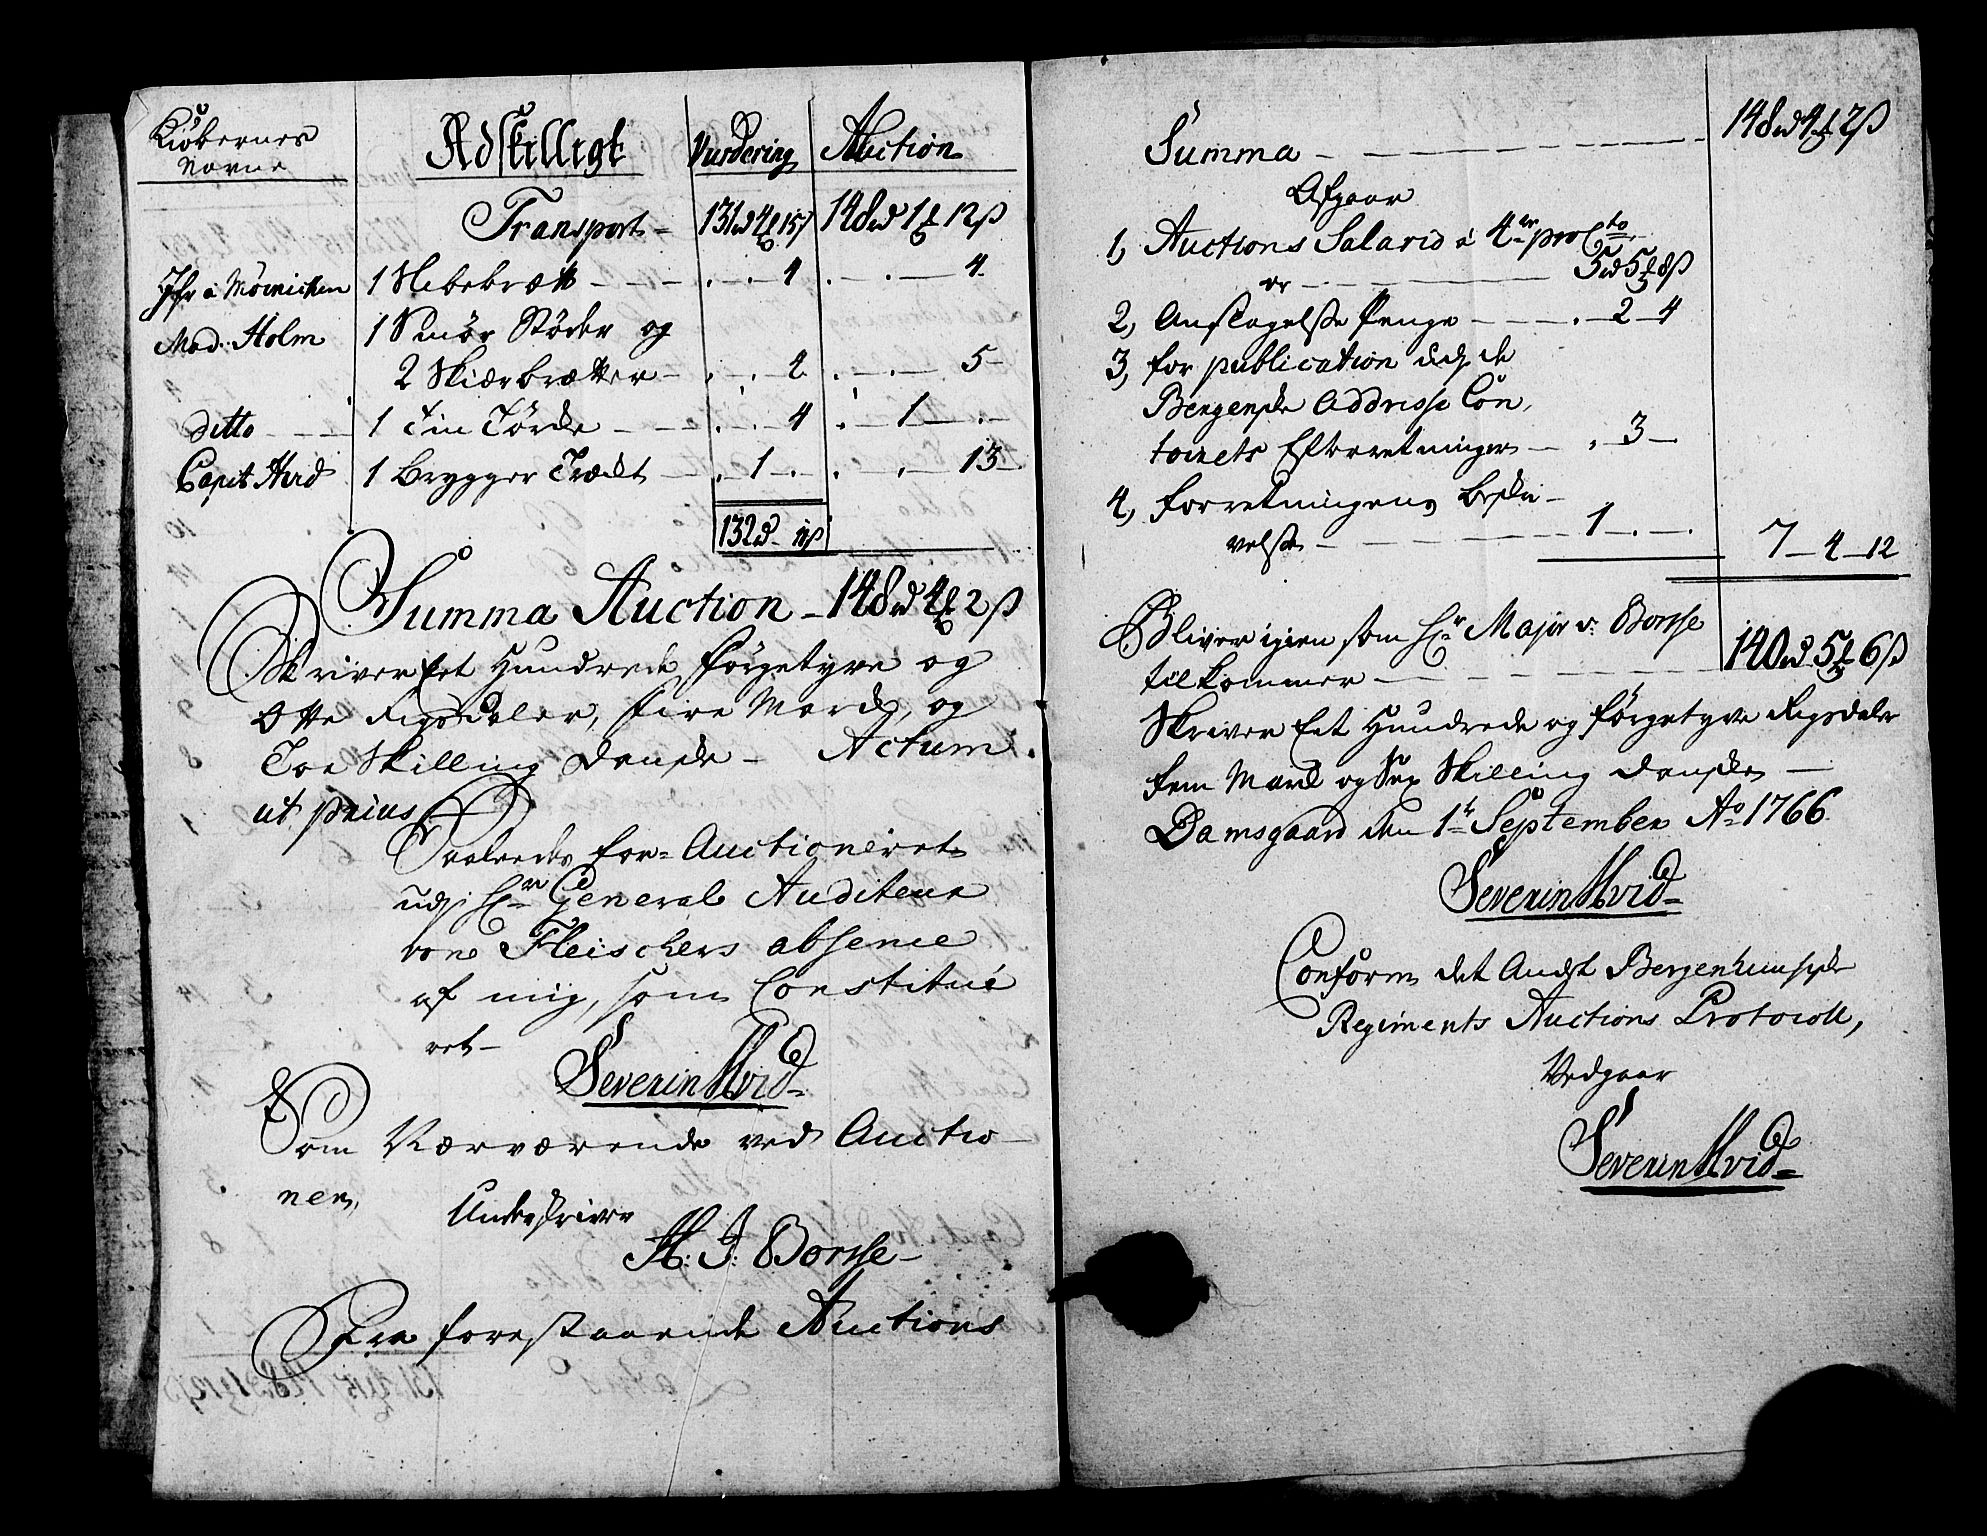 Kiøbernes
Navne
Adskilligt
Vurdering
Auction
Transport – 131rd 4 15s 148rd 1 12s
Jfr á Møinichen 1 Hebebræt – – – . . – 4 . – . – 4
Mad: Holm 1 Smør Støder og
2 Skiærbrætter – . – . 2 . – . – 5 –
ditto – – – 1 Tin Tørde – – . – . – 4 . – 1 – .
Capit Hvid 1 Brygger Trædt – . – 1 – . . . – 13 –
132rd – 11s
Summa Auction – 148rd 4 2s
Skriver Eet Hundrede, Førgetyve og
Otte Rigsdaler, fire Mark, og
Toe Skilling Danske – Actum
ut prius
Saaledes for- Auctioneret
udj Hr General Auditeur
von Fleischers absence
af mig, som Constitue
ret –
Severin Hvid –
Som Nærværende ved Auctio –
nen,
Underskriver
H: J: Borsse –
Fra forestaaende Auctions
Summa – – – – – 148rd 4 2s
Afgaar
1, Auctions Salario á 4er pro Cto
er – . – – – 5rd 5 8s
2, Anslagelse Penge – – – . – 2 – 4
3, for publication udj de
Bergenske Addresse Con,
toirets Efterretninger – . – 3 –
4, Forretningens beskri –
velse – – – – – 1 – . – . 7 – 4 – 12
Bliver igien som Hr Major v: Borsse
tilkommer – – – – – – 140rd 5 6s
Skriver Eet Hundrede og førgetyve Rigsdaler
fem Mark og Sex Skilling Danske –
Damsgaard den 1te September Ao 1766.
Severin Hvid –
Conform det Andet Bergenhuusske
Regiments Auctions Protocoll,
Vedgaar
Severin Hvid –